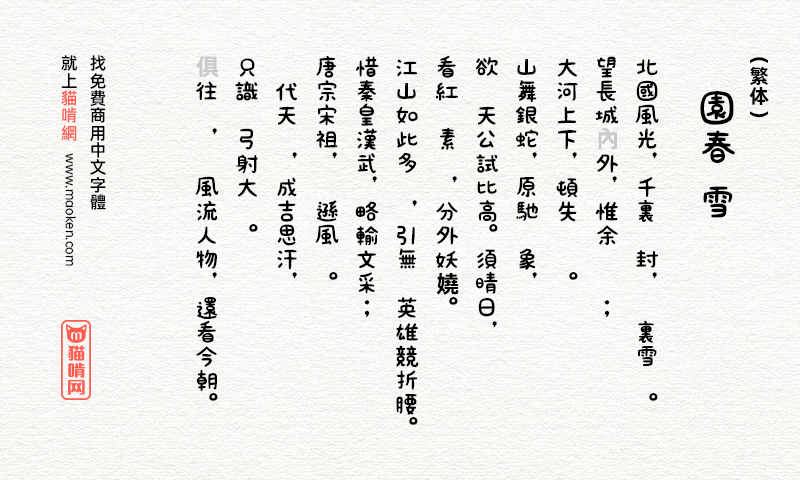 (繁体)
園春 雪
北國風光，千裏 封， 裏雪 。
望長城內外，惟余 ；
大河上下，頓失 。
山舞銀蛇，原馳 象，
欲 天公試比高。須晴日，
看紅 素 ，分外妖嬈。
江山如此多 ，引無 英雄競折腰。
惜秦皇漢武，略輸文采；
唐宗宋祖， 遜風 。
代天 ，成吉思汗，
只識 弓射大 。
俱往 ，風流人物，還看今朝。
找免費商用中文字體
就上貓啃網 www.maoken.com
貓啃网